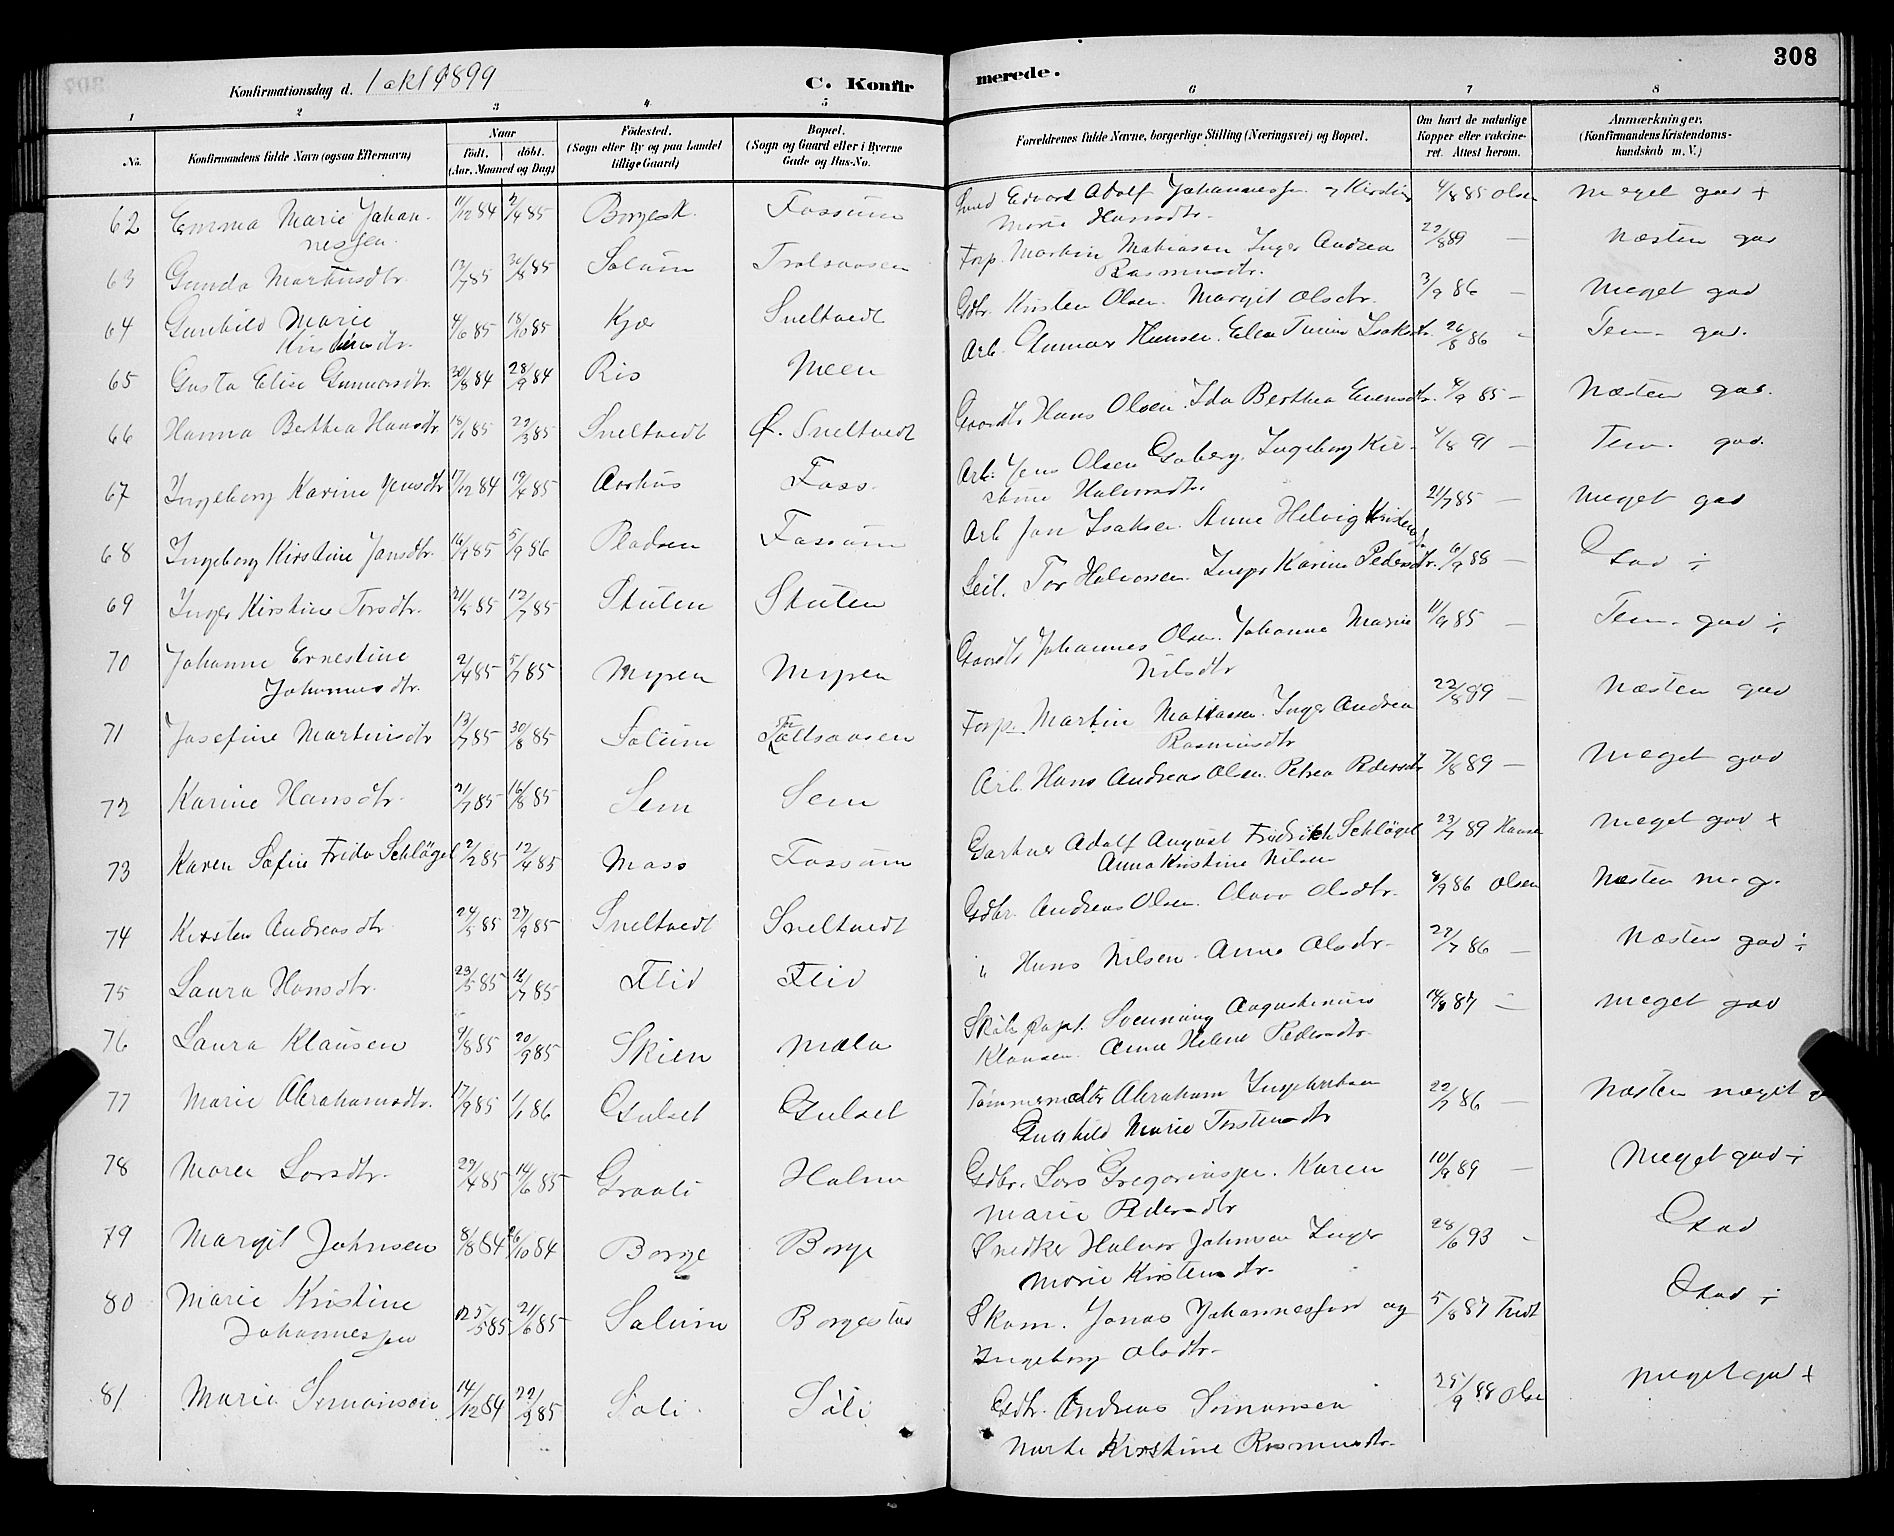 308
Konfirmationsdag d. 1 okt 1899 C. Konfirmerede.
1 2 3 4 5 6 7 8
No. Konfirmandens fulde Navn (ogsaa Efternavn) Naar født, døbt. (Aar, Maaned og Dag) Fødested. (Sogn eller By og paa Landet tillige Gaard) Bopæl. (Sogn og Gaard eller i Byerne Gade og Hus-No. Forældrenes fulde Navne, borgerlige Stilling (Næringsvei) og Bopæl. Om havt de naturlige Kopper eller vaccineret. Attest herom. Anmærkninger. (Konfirmandens Kristendomskundskab m. V.)
62 Emma Marie Johannessen 11/12 84 2/4 85 Borgesk. Fossum Edvard Adolf Johannessen og Kirstine Marie Hansdtr. 4/8 85 Olsen Meget god +
63 Gunda Martinsdtr. 13/7 85 30/8 85 Solum Trolsaasen Forp. Martin Mathiasen Inger Andrea Rasmusdtr. 22/8 89 — Næsten god
64 Gunhild Marie Kirstensdtr. 4/6 85 18/10 85 Kjær Sneltvedt Gdbr. Kirsten Olsen. Margit Olsdtr. 3/9 86 — Meget god
65 Gusta Elise Gunnarsdtr. 30/8 84 28/9 84 Ris Meen Arb. Gunnar Hansen. Elen Isaksdtr. 26/8 86 - Tem. god.
66 Hanna Berthea Hansdtr 18/1 85 29/3 85 Sneltvedt Ø. Sneltvedt Gaardb. Hans Olsen. Ida Berthea Evensdtr. 4/9 85 — Næsten god.
67 Ingeborg Karine Jensdtr 17/12 84 19/4 85 Aarhus Foss. Arb. Jens Olsen Ingeborg Kirstine Halvorsdtr. 4/8 91 — Tem. god.
68 Ingeborg Kirstine Jonsdtr. 16/1 85 5/9 86 Pladsen Fossum Arb. Jon Isaksen. Anne Helvig 21/7 85 — Meget god
69 Inger Kirstine Torsdtr. 21/5 85 12/7 85 Skuten Skuten Seil. Tor Halvorsen. Inger Karine Pedersdtr. 6/9 88 — God ÷
70 Johanne Ernestine Johannesdtr. 2/4 85 5/7 85 Myren Myren Gaardb. Johannes Olsen. Johanne Marie Nilsdtr 11/9 85 — Tem. god ÷
71 Josefine Martinsdtr 13/7 85 30/8 85 Solum Trollsaasen Forp. Martin Mathiasen. Inger Andrea Rasmusdtr 22/8 89 — Næsten god
72 Karine Hansdtr. 21/7 85 16/8 85 Sem Sem Arb. Hans Andreas Olsen. Petrea Pedersdtr 7/8 89 — Meget god
73 Karen Sofie Frida Schlögel 2/2 85 12/4 85 Moss Fossum Gartner Adolf August Fridrich Schlögel Anna Kristine Nilsen 23/7 89 Hansen Meget god +
74 Kirsten Andreasdtr 24/5 85 27/9 85 Sneltvedt Sneltvedt Gdbr. Andreas Olsen. Olsdtr. 4/9 86 Olsen Næsten m. g.
75 Laura Hansdtr. 23/5 85 12/7 85 Flid Flid " Hans Nilsen. Anne Olsdtr. 22/7 86 — Næsten god ÷
76 Laura Klausen 9/8 85 20/9 85 Skien Mæla Svenning Augustinius Klausen. Anne Helene Pedersdtr. 14/8 87 — Meget god
77 Marie Abrahamsdtr. 17/9 85 1/1 86 Gulset Gulset Abraham Gunhild Marie Torstensdtr 22/7 86 — Næsten meget
78 Maren Larsdtr. 29/4 85 14/6 85 Graali Holm Gdbr. Lars Gregoriussen. Karen Marie Pedersdtr 10/9 89 — Meget god ÷
79 Margit Johnsen 8/8 84 26/10 84 Borge Borge Snedker Halvor Johnsen Inger Marie Kirstensdtr. 28/6 93 - God
80 Marie Kristine Johannessen 25/5 85 21/6 85 Solum Borgestad Skom. Jonas Johannessen og Ingeborg Olsdtr. 5/8 87 God ÷
81 Marie Simonsen 14/12 84 22/2 85 Søli Søli Gdbr. Andreas Simonsen Marte Kirstine Rasmusdtr. 25/9 88 Olsen Meget god +